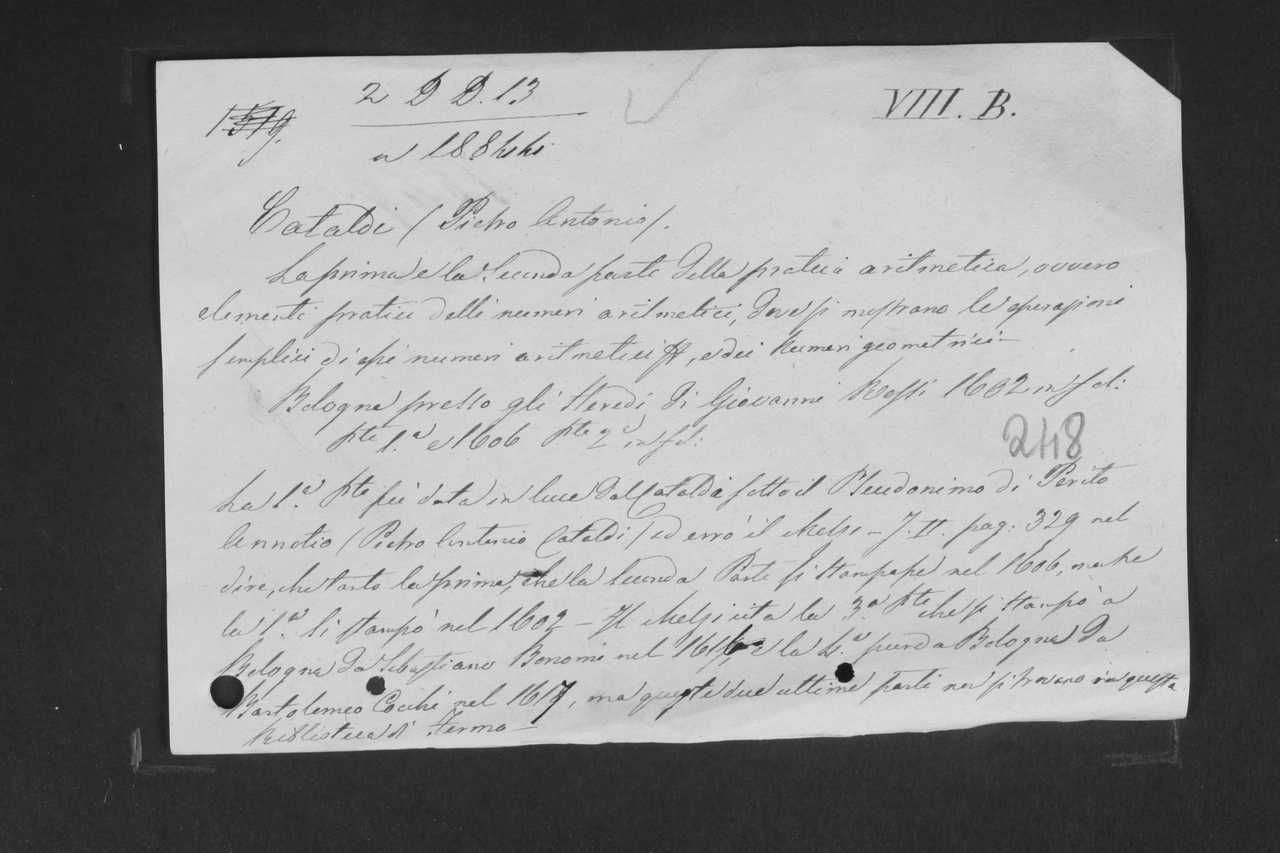 2 D D. 13
VIII. B.
n 18844
Cataldi (Pietro Antonio).
La prima e la Seconda parte della pratica aritmetica, ovvero
elementi pratici delli numeri aritmetici, dove si mostrano le operazioni
semplici di essi numeri aritmetici, e dei Numeri geometrici -
Bologna presso gli Heredi di Giovanni Rossi 1602 in fol:
pte 1.a e 1606 pte 2.a in fol:
248
La 1.a pte fu data in luce dal Cataldi sotto il Pseudonimo di Perito
Annotio (Pietro Antonio Cataldi) ed errò il Melzi - T. II. pag: 329 nel
dire, che tanto la prima, che la seconda Parte si stampasse nel 1606, mache
la 1.a si stampò nel 1602 - Il Melzi cita la 3.a pte che si stampò a
Bologna da Sebastiano Bonomi nel 1616, e la 4.a pure a Bologna da
Bartolomeo Cocchi nel 1617, ma queste due ultime parti non si trovano in questa
Biblioteca di Fermo -